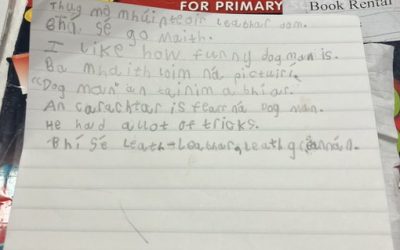 FOR PRIMARY
Book Rental
Thug mo mhúinteoir leabhar dom.
Bhí sé go maith.
I like how funny dog man is.
Ba mhaith liom ná pictuirí.
"Dog man" an tainim a bhí ar.
An carachtar is fearr ná Dog man.
He had a lot of tricks.
Bhí sé leath-leabhar, leath grannán.